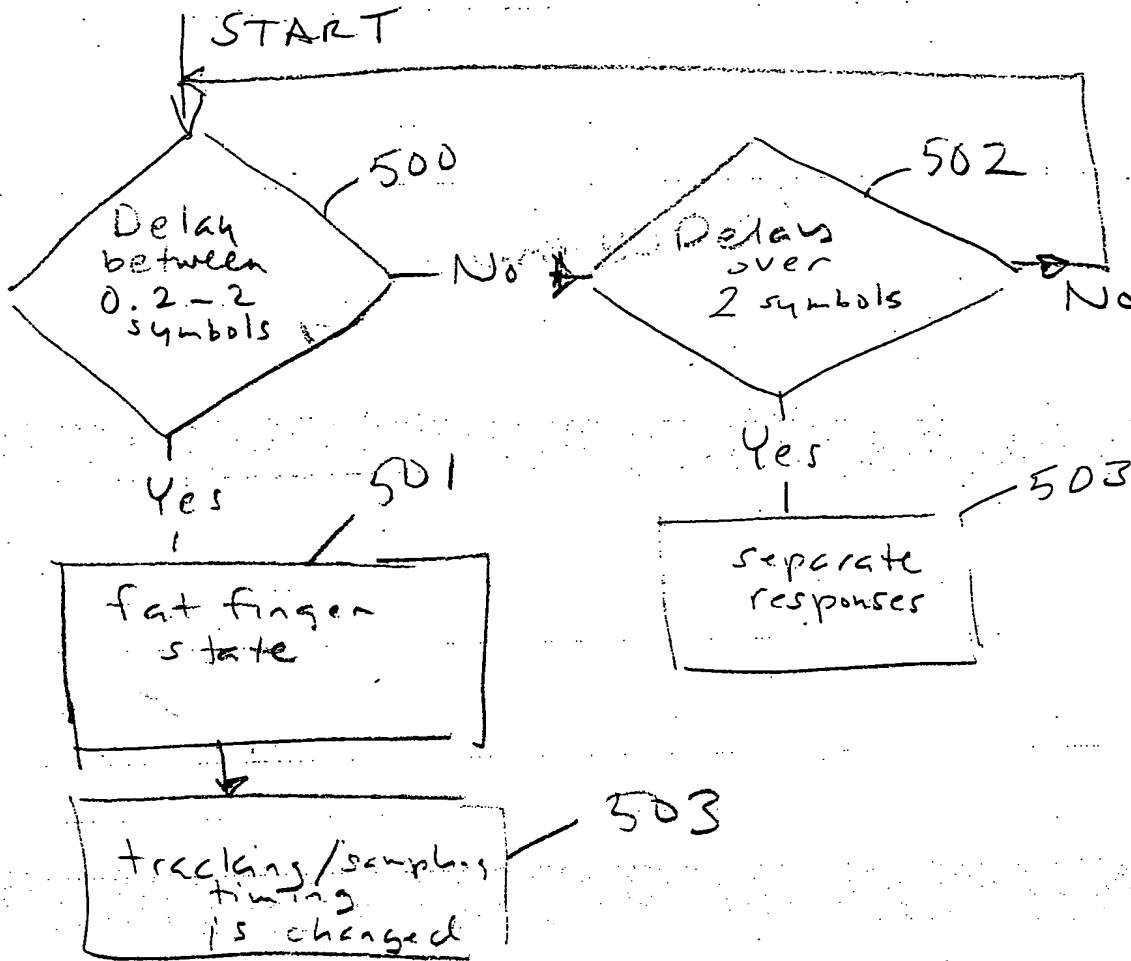 START
500
Delay
between
0.2-2
symbols
No
502
Delays
over
2 symbols
No
Yes
501
fat finger
state
Yes
503
separate
responses
503
tracking/sampling
timing
is changed